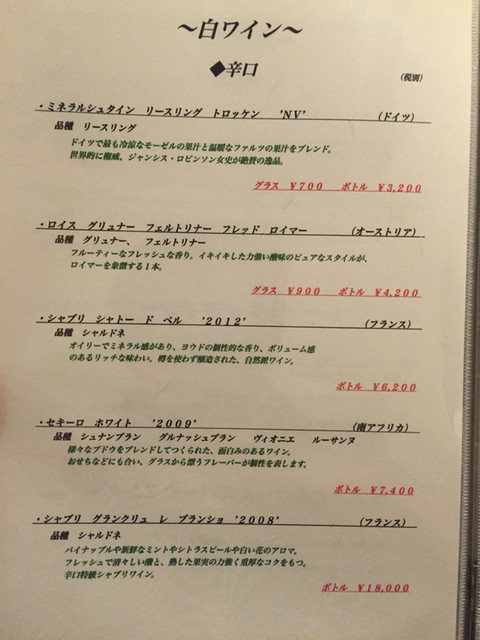 ～白ワイン～
◆辛口
(税別)
・ミネラルシュタイン リースリング トロッケン 'NV' (ドイツ)
品種 リースリング
ドイツで最も冷涼なモーゼルの果汁と温暖なファルツの果汁をブレンド。
世界的に権威、ジャンシス・ロビンソン女史が絶賛の逸品。
グラス ￥700 ボトル ￥3,200
・ロイス グリュナー フェルトリナー フレッド ロイマー (オーストリア)
品種 グリュナー、 フェルトリナー
フルーティーなフレッシュな香り。イキイキした力強い酸味のピュアなスタイルが、
ロイマーを象徴する１本。
グラス ￥900 ボトル ￥4,200
・シャブリ シャトー ド ベル '2012' (フランス)
品種 シャルドネ
オイリーでミネラル感があり、ヨウドの個性的な香り、ボリューム感
のあるリッチな味わい。樽を使わず醸造された、自然派ワイン。
ボトル ￥6,200
・セキーロ ホワイト '2009' (南アフリカ)
品種 シュナンブラン グルナッシュブラン ヴィオニエ ルーサンヌ
様々なブドウをブレンドしてつくられた、面白みのあるワイン。
おせちなどにも合い、グラスから漂うフレーバーが個性を表します。
ボトル ￥7,400
・シャブリ グランクリュ レ ブランショ '2008' (フランス)
品種 シャルドネ
パイナップルや新鮮なミントやシトラスピールや白い花のアロマ。
フレッシュで清々しい酸と、熟した果実の力強く重厚なコクをもつ。
辛口特級シャブリワイン。
ボトル ￥18,000